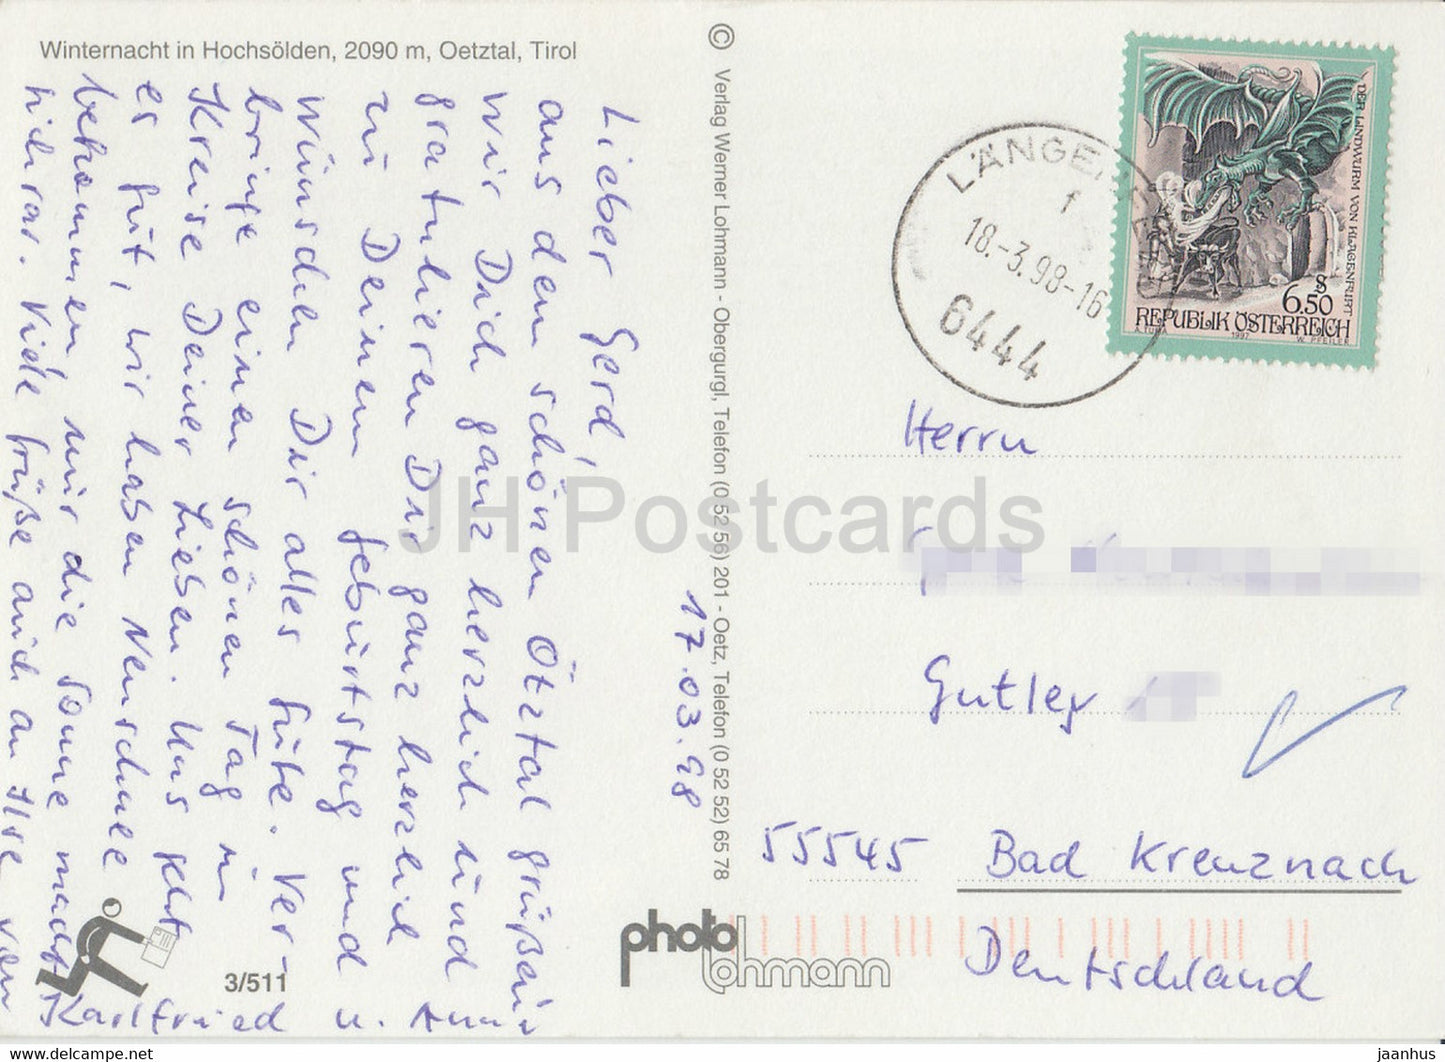 Winternacht in Hochsölden, 2090 m, Oetztal, Tirol
Lieber Gerd,
aus dem schönen Ötztal grüßen
wir Dich ganz herzlich und
gratulieren Dir ganz herzlich
zu Deinem Geburtstag und
wünschen Dir alles Gute. Ver-
bringe einen schönen Tag im
Kreise Deiner Lieben. Uns geht
es gut, wir haben Schnee
bekommen nur die Sonne macht
sich rar. Viele Grüße auch an Ilse von
Karlfried u. Anni
17.03.98
© Verlag Werner Lohmann - Obergurgl, Telefon (0 52 56) 201 - Oetz, Telefon (0 52 52) 65 78
3/511
photo
lohmann
LÄNGENFELD
1
18.-3.98-16
6444
DER LINDWURM VON KLAGENFURT
S
6.50
REPUBLIK ÖSTERREICH
A. TUMA 1997 W. PFEILER
Herrn
55545 Bad Kreuznach
Deutschland
JH Postcards
jaanhus @ delcampe.net